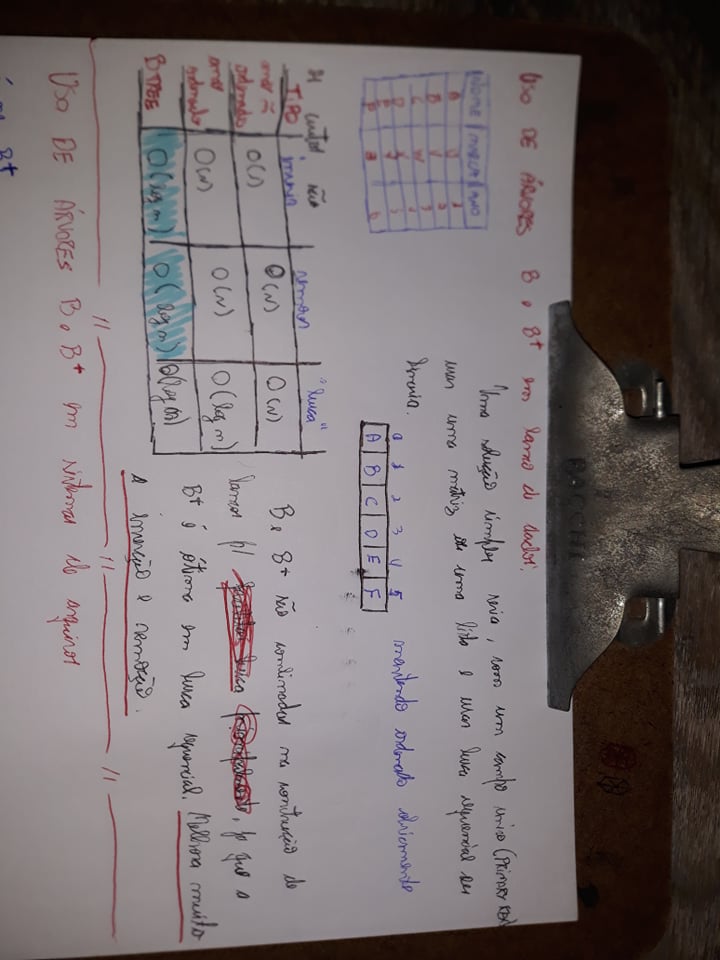 BACCHI
USO DE ÁRVORES B e B+ em banco de dados.
Uma solução simples seria, com um campo unico (PRIMARY KEY)
usar uma matriz ou uma lista e usar busca sequencial ou
binaria.
NOME MARCA ANO
0 1 2 3 4 5
A B C D E F
mantendo ordenado obviamente
custos são
TIPO inserir remover "busca"
array ñ ordenado O(1) O(N) O(N)
array ordenado O(N) O(N) O(log n)
B TREE O(log n) O(log n) O(log n)
B e B+ são combinadas na contrução de
bancos p/ , ja que a
B+ é ótima em busca sequencial. Melhora muito
a inserção e remoção.
USO DE ÁRVORES B e B+ em sistemas de arquivos
B+